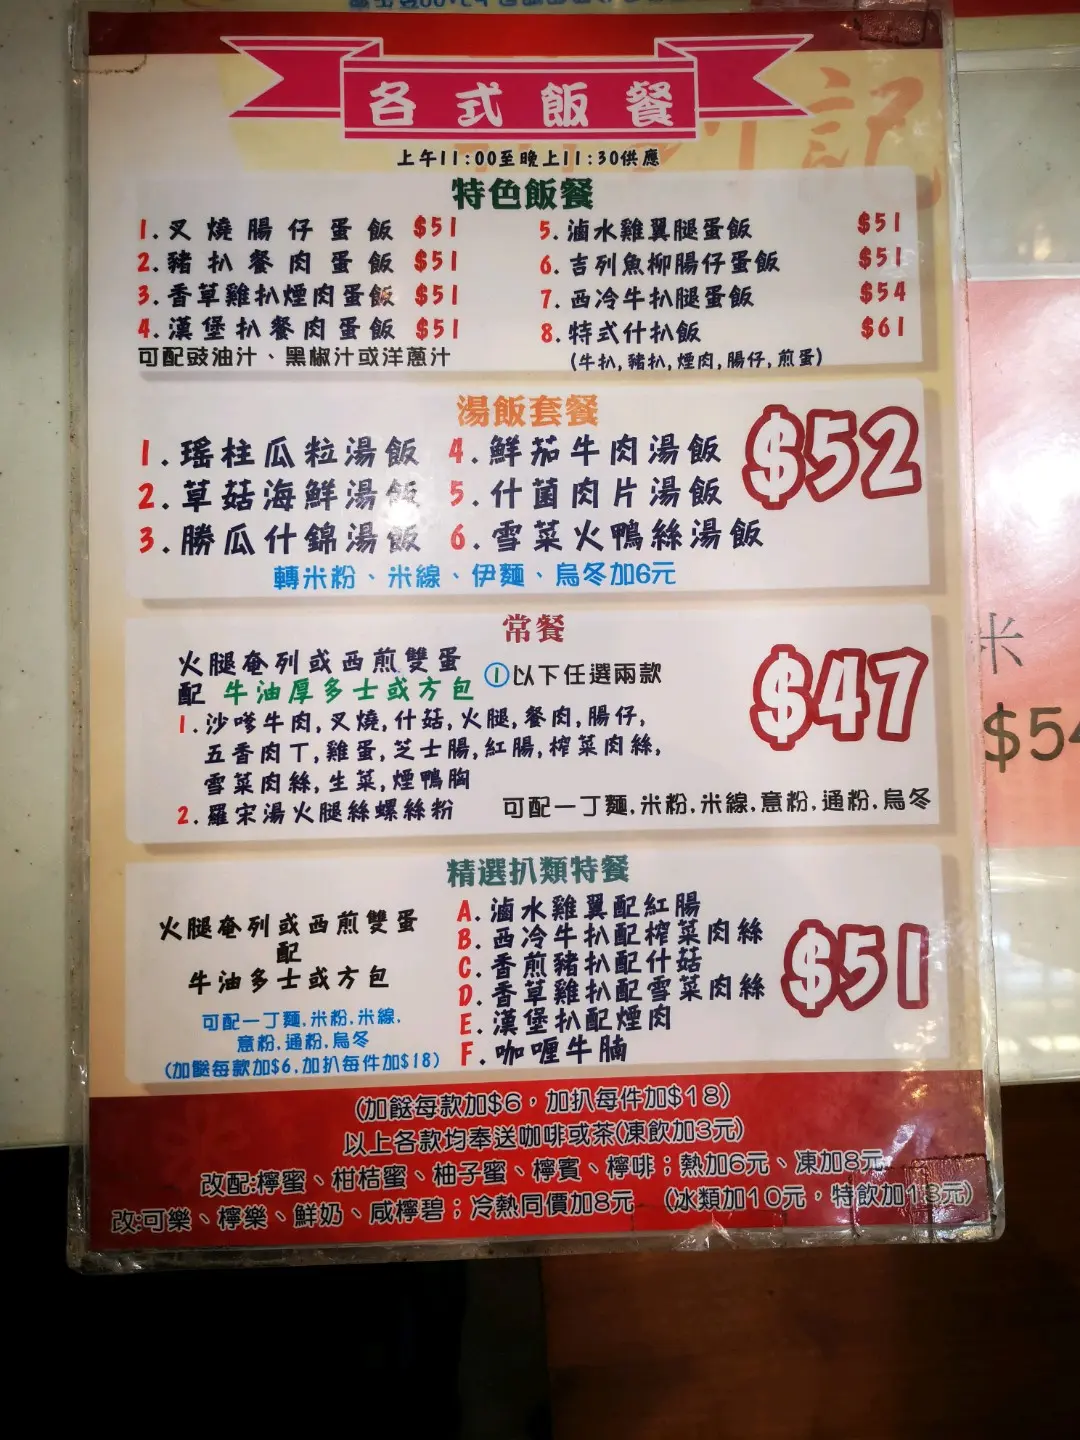 各式飯餐
上午11:00至晚上11:30供應
特色飯餐
1.叉燒腸仔蛋飯 $51
2.豬扒餐肉蛋飯 $51
3.香草雞扒煙肉蛋飯 $51
4.漢堡扒餐肉蛋飯 $51
可配豉油汁、黑椒汁或洋蔥汁
5.滷水雞翼腿蛋飯 $51
6.吉列魚柳腸仔蛋飯 $51
7.西冷牛扒腿蛋飯 $54
8.特式什扒飯 $61
(牛扒,豬扒,煙肉,腸仔,煎蛋)
湯飯套餐
$52
1.瑤柱瓜粒湯飯
2.草菇海鮮湯飯
3.勝瓜什錦湯飯
4.鮮茄牛肉湯飯
5.什菌肉片湯飯
6.雪菜火鴨絲湯飯
轉米粉、米線、伊麵、烏冬加6元
常餐
$47
火腿奄列或西煎雙蛋
配 牛油厚多士或方包
①以下任選兩款
1.沙嗲牛肉,叉燒,什菇,火腿,餐肉,腸仔,
五香肉丁,雞蛋,芝士腸,紅腸,榨菜肉絲,
雪菜肉絲,生菜,煙鴨胸
2.羅宋湯火腿絲螺絲粉
可配一丁麵,米粉,米線,意粉,通粉,烏冬
精選扒類特餐
$51
火腿奄列或西煎雙蛋
配
牛油多士或方包
可配一丁麵,米粉,米線,
意粉,通粉,烏冬
(加餸每款加$6,加扒每件加$18)
A.滷水雞翼配紅腸
B.西冷牛扒配榨菜肉絲
C.香煎豬扒配什菇
D.香草雞扒配雪菜肉絲
E.漢堡扒配煙肉
F.咖喱牛腩
(加餸每款加$6,加扒每件加$18)
以上各款均奉送咖啡或茶(凍飲加3元)
改配:檸蜜、柑桔蜜、柚子蜜、檸賓、檸啡;熱加6元、凍加8元
改:可樂、檸樂、鮮奶、咸檸碧;冷熱同價加8元 (冰類加10元,特飲加13元)
記
米
$54